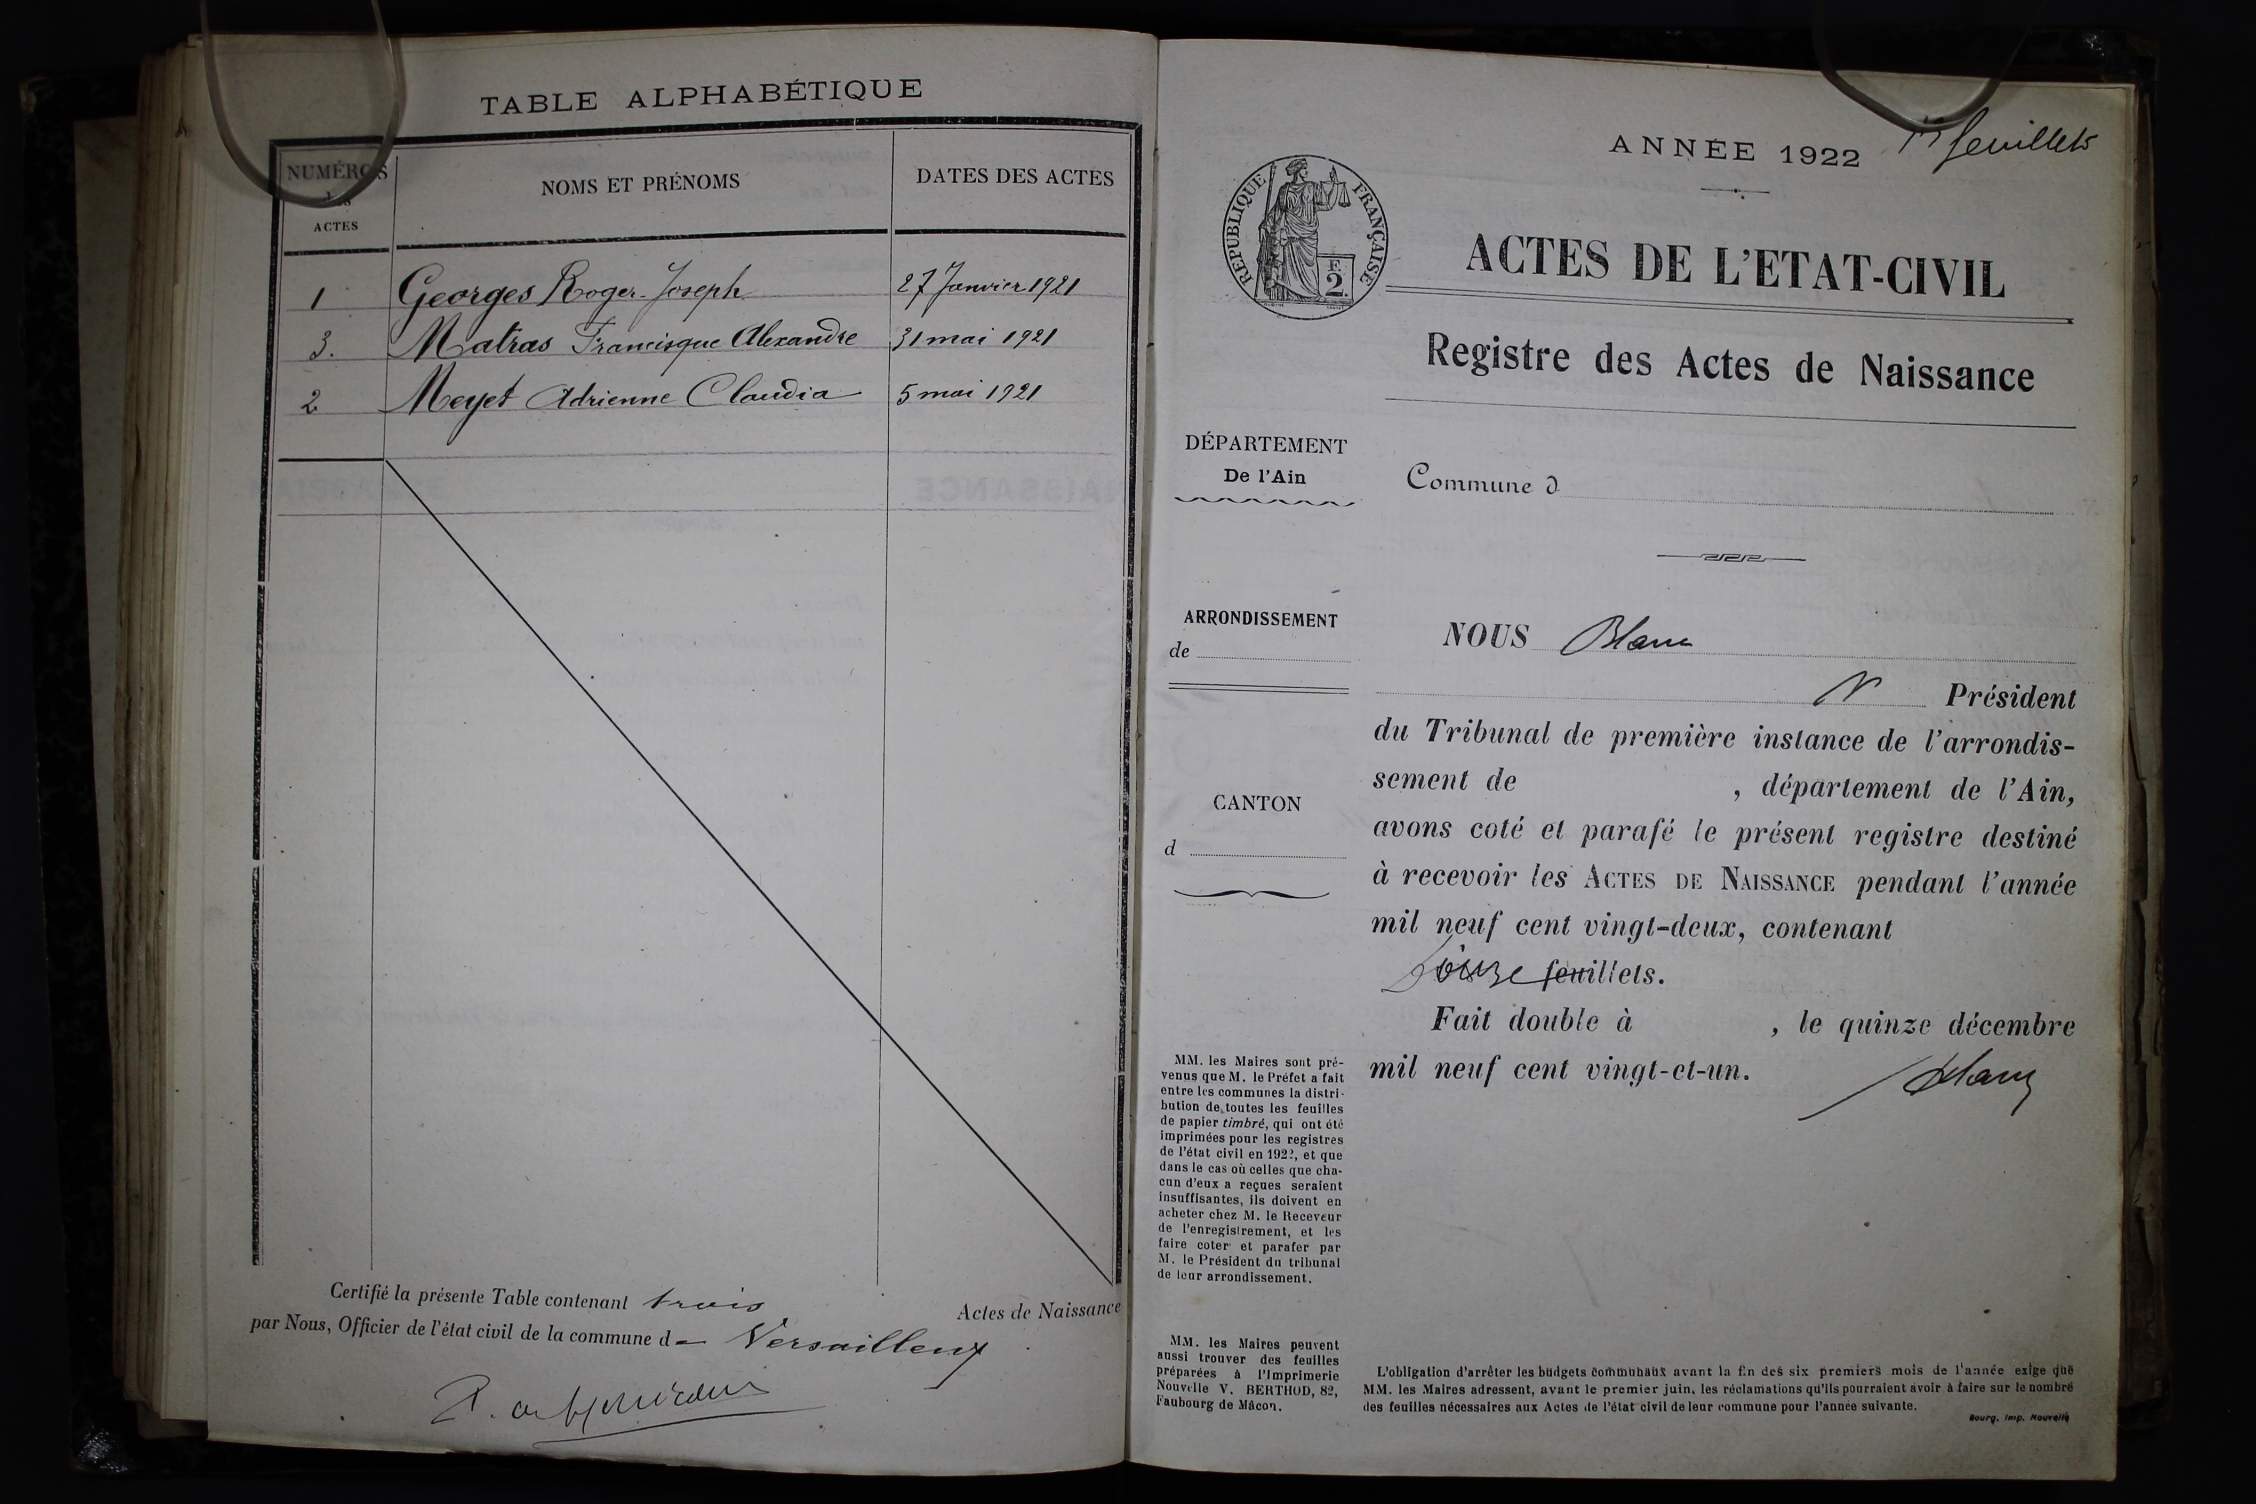 TABLE ALPHABÉTIQUE
NUMÉROS
des
ACTES
NOMS ET PRÉNOMS
DATES DES ACTES
1 Georges Roger-Joseph 27 Janvier 1921
3. Matras Francisque Alexandre 31 mai 1921
2 Meyet Adrienne Claudia 5 mai 1921
Certifié la présente Table contenant trois Actes de Naissance
par Nous, Officier de l'état civil de la commune de Versailleux
ANNÉE 1922
feuillets
RÉPUBLIQUE FRANÇAISE
F.
2.
ACTES DE L'ETAT-CIVIL
Registre des Actes de Naissance
DÉPARTEMENT
De l'Ain
Commune d
ARRONDISSEMENT
de
CANTON
d
NOUS Blanc
Président
du Tribunal de première instance de l'arrondis-
sement de , département de l'Ain,
avons coté et parafé le présent registre destiné
à recevoir les ACTES DE NAISSANCE pendant l'année
mil neuf cent vingt-deux, contenant
feuillets.
Fait double à , le quinze décembre
mil neuf cent vingt-et-un.
Blanc
MM. les Maires sont pré-
venus que M. le Préfet a fait
entre les communes la distri-
bution de toutes les feuilles
de papier timbré, qui ont été
imprimées pour les registres
de l'état civil en 1922, et que
dans le cas où celles que cha-
cun d'eux a reçues seraient
insuffisantes, ils doivent en
acheter chez M. le Receveur
de l'enregistrement, et les
faire coter et parafer par
M. le Président du tribunal
de leur arrondissement.
MM. les Maires peuvent
aussi trouver des feuilles
préparées à l'Imprimerie
Nouvelle V. BERTHOD, 82,
Faubourg de Mâcon.
L'obligation d'arrêter les budgets communaux avant la fin des six premiers mois de l'année exige que
MM. les Maires adressent, avant le premier juin, les réclamations qu'ils pourraient avoir à faire sur le nombre
des feuilles nécessaires aux Actes de l'état civil de leur commune pour l'année suivante.
Bourg, Imp. Nouvelle